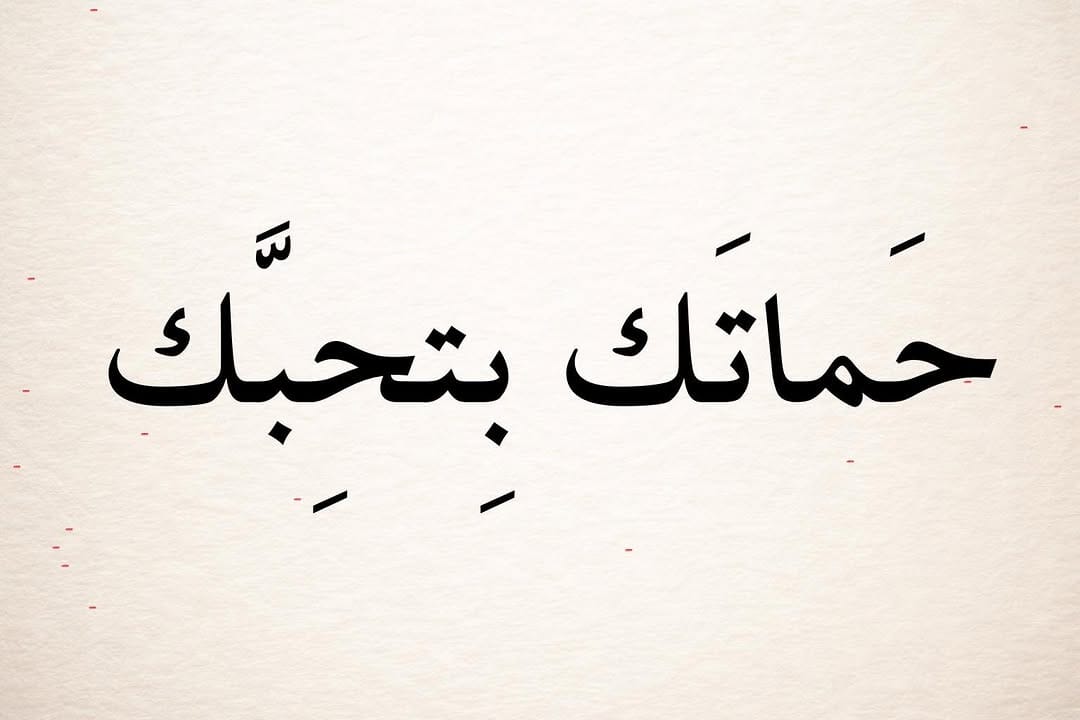 حَماتَك بِتحِبَّك